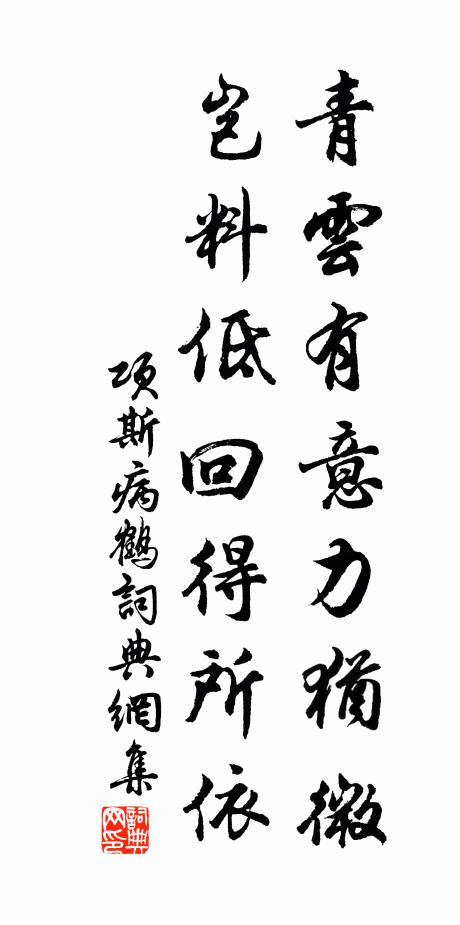 青雲有意力猶微
豈料低回得所依
項斯病鶴詞典網集
詞典网印